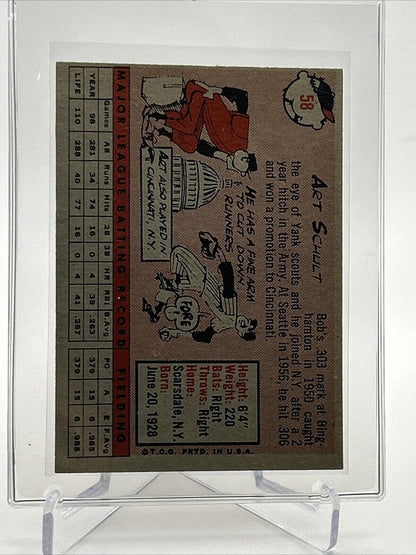 58
ART SCHULT
Bob's .303 mark at Bing-
hamton in 1950 caught
the eye of Yank scouts and he joined N.Y. after a 2
year hitch in the Army. At Seattle in 1956, he hit .306
and won a promotion to Cincinnati.
HE HAS A FINE ARM
TO CUT DOWN
RUNNERS
ART ALSO PLAYED IN
CINCINNATI, N.Y.
FORE
Height: 6'4"
Weight: 220
Bats: Right
Throws: Right
Home:
Scarsdale, N.Y.
Born:
June 20, 1928
© T.C.G. PRTD. IN U.S.A.
MAJOR LEAGUE BATTING RECORD FIELDING
Games AB Runs Hits 2B 3B HR RBI B.Avg PO A E F.Avg
YEAR 98 281 34 74 16 0 4 39 .263 379 15 6 .985
LIFE 110 288 40 77 16 0 4 41 .267 379 15 6 .985